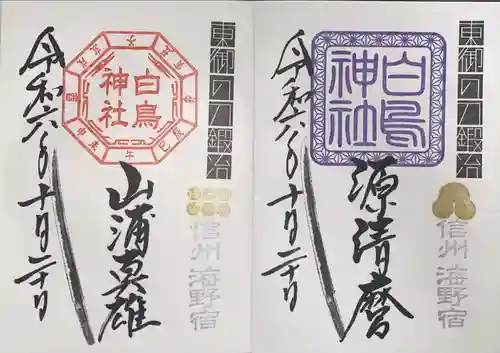 東御の刀鍛冶
白鳥神社
山浦真雄
信州 海野宿
令和六年十月二十日
東御の刀鍛冶
白鳥神社
源清麿
信州 海野宿
令和六年十月二十日